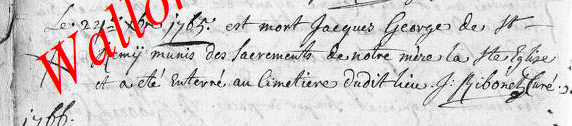 Le 22e Xbre 1765. est mort Jacques George de St
Remij munis des Sacrements de notre mère la Ste Eglise
et a eté enterré au Cimetiere dudit lieu. J: Ribonet Curé.
1766.
Wallo